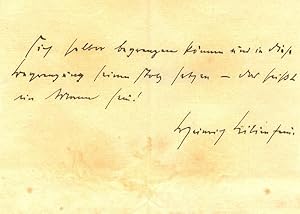 Sich selber begrenzen können und in diese
Begrenzung seinen Stolz setzen – das heißt
ein Mann sein!
Heinrich Lilienfein